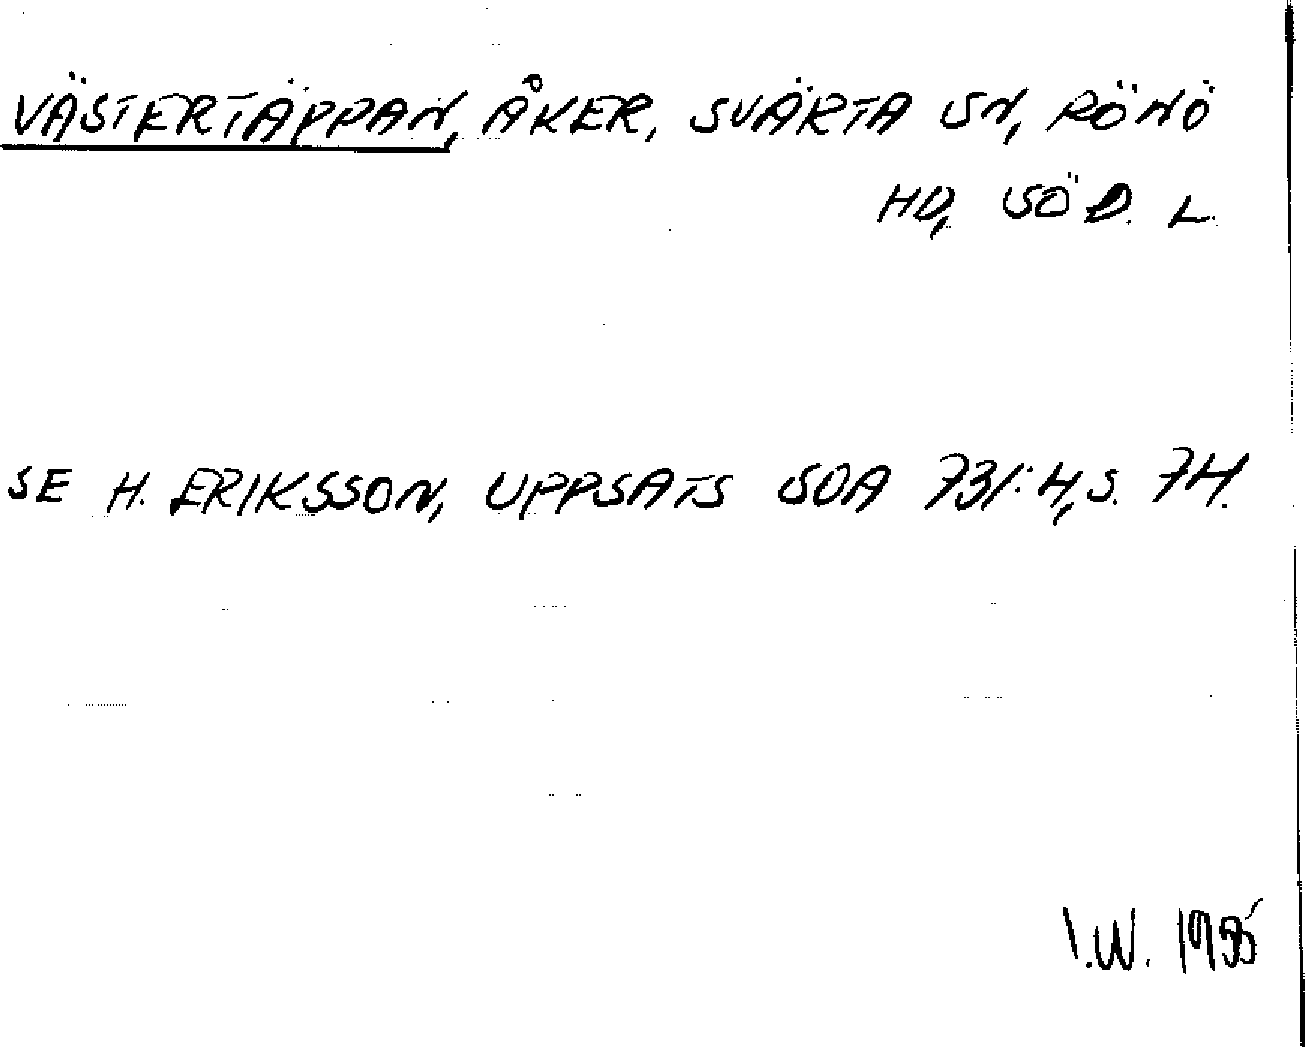 VÄSTERTÄPPAN, ÅKER, SVÄRTA SN, RÖNÖ
HD, SÖD. L.
SE H. ERIKSSON, UPPSATS SOA 731:4, S. 74.
I.W.